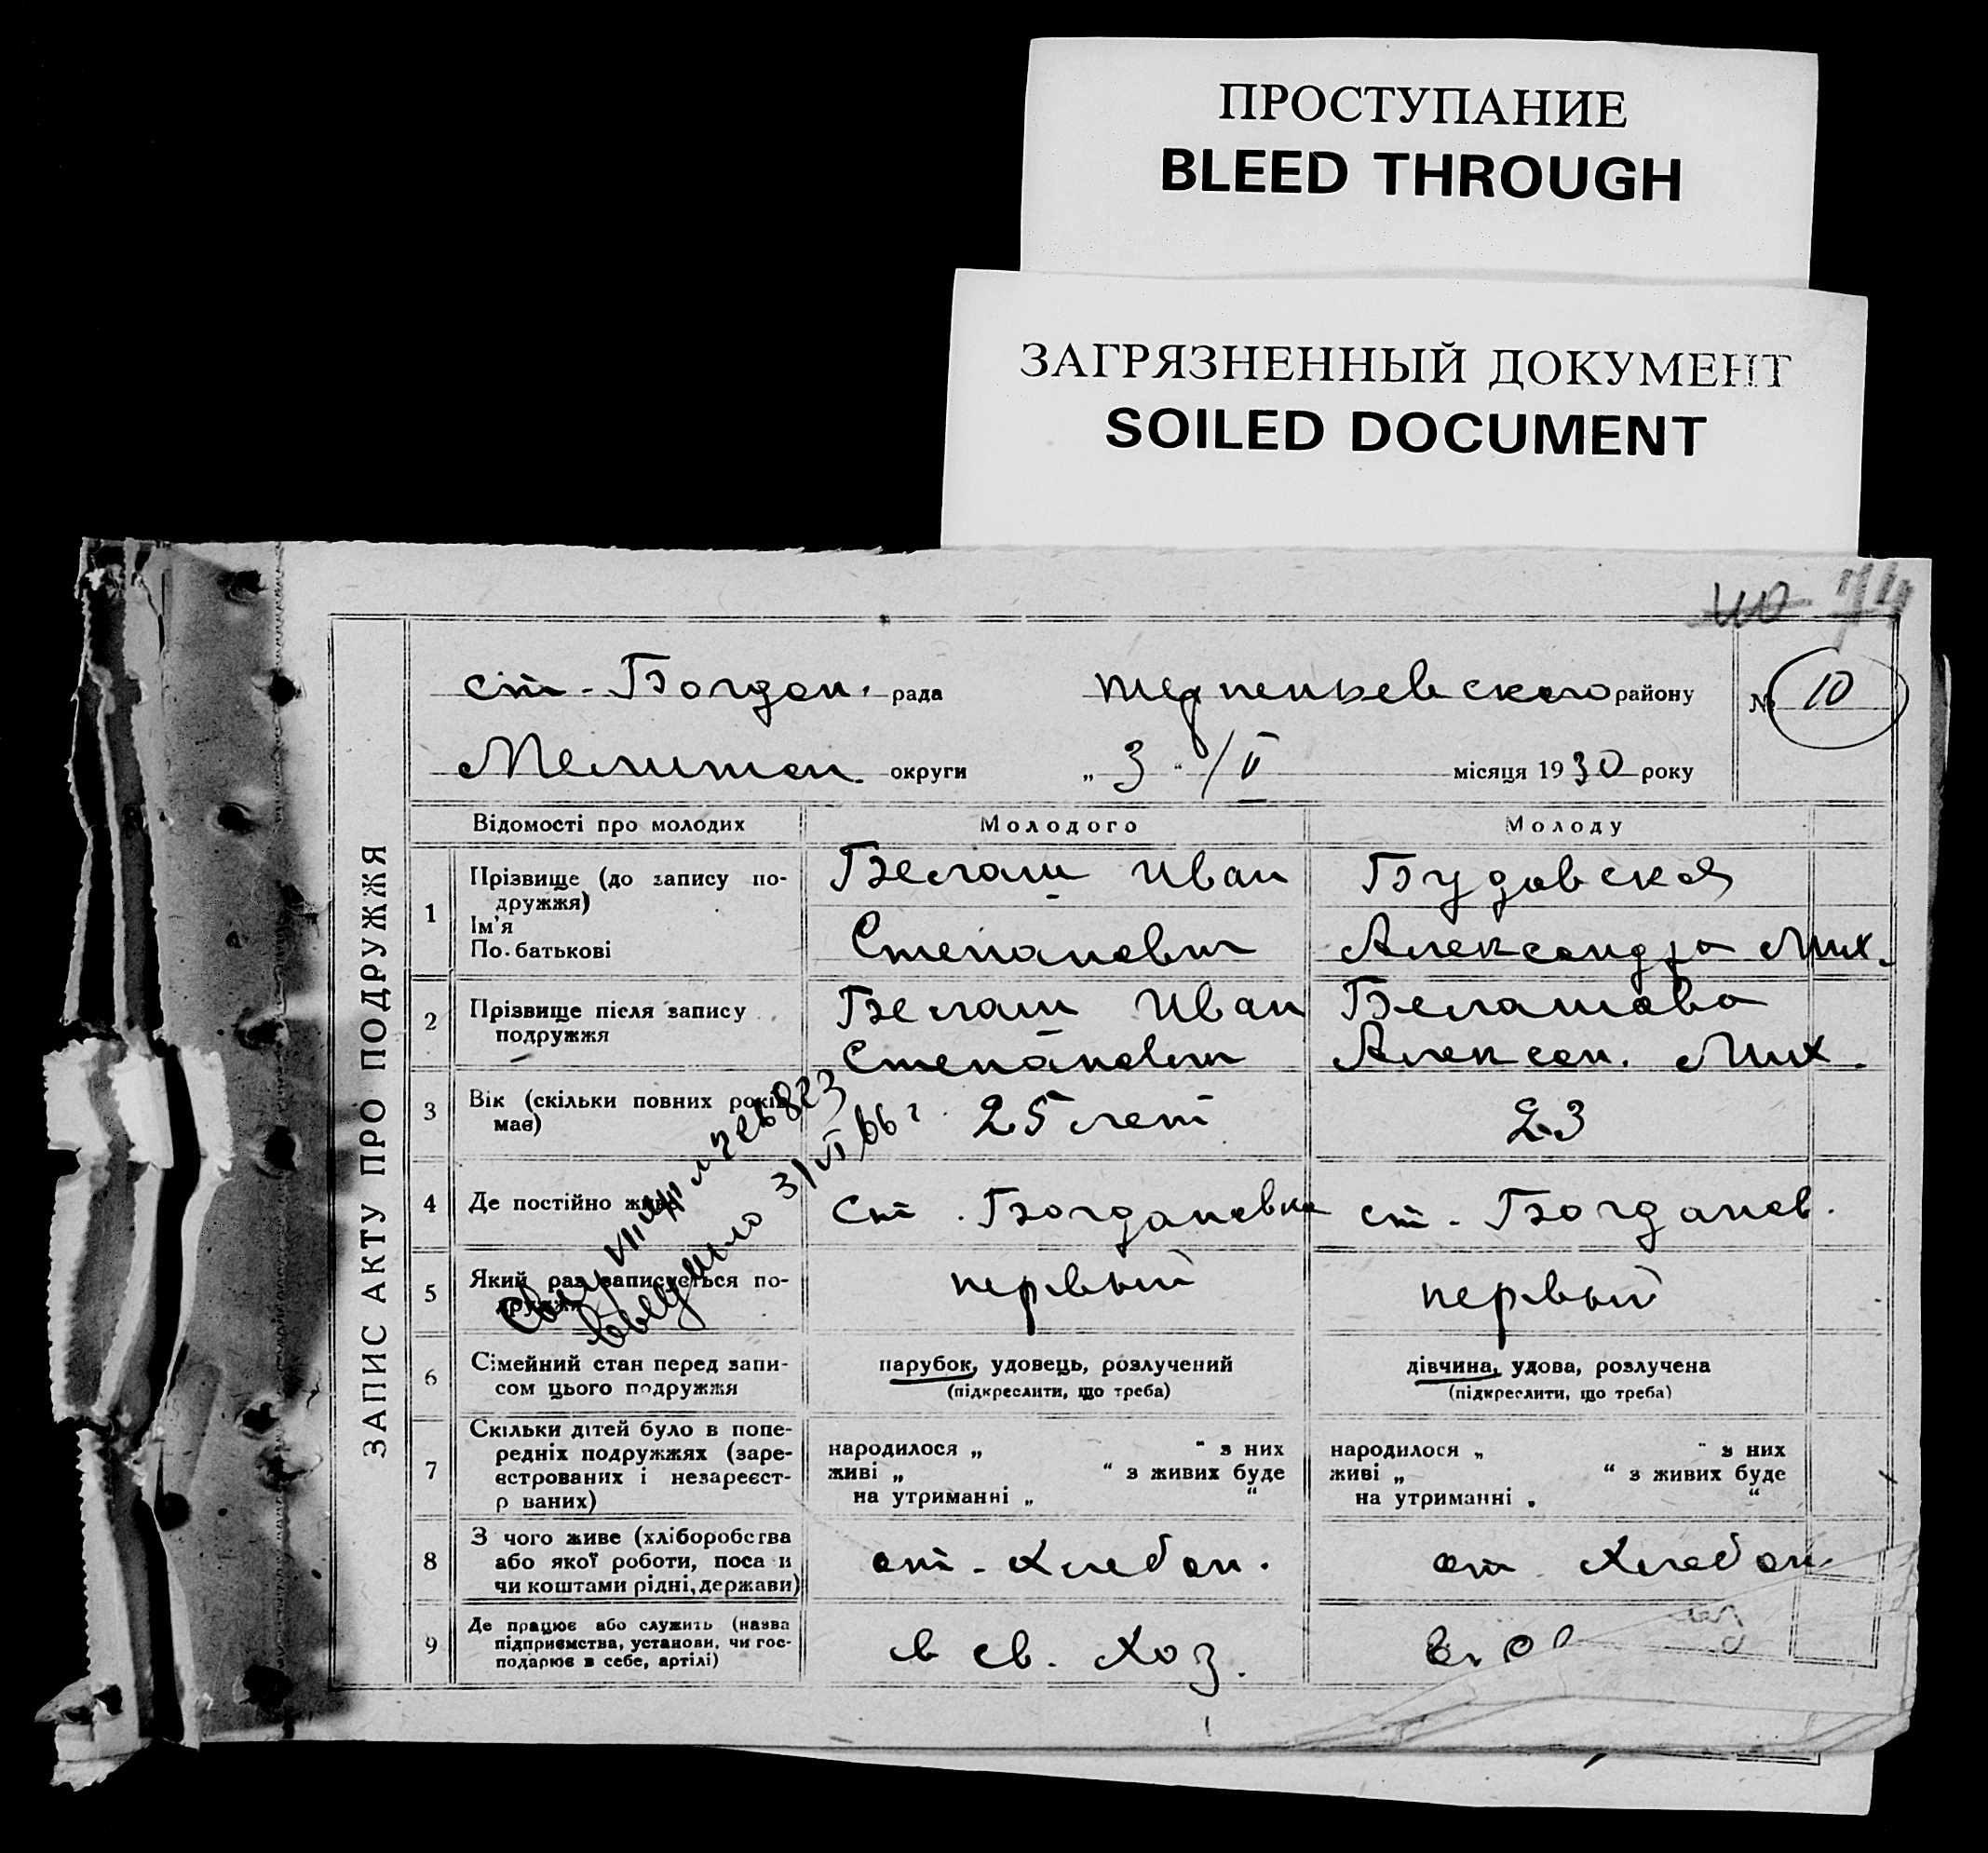 ПРОСТУПАНИЕ
BLEED THROUGH
ЗАГРЯЗНЕННЫЙ ДОКУМЕНТ
SOILED DOCUMENT
ЗАПИС АКТУ ПРО ПОДРУЖЖЯ
ст - Богдан. рада терпеньевского району № 10
Мелитоп. округи „ 3 “ / II місяця 1930 року
Відомості про молодих Молодого Молоду
1 Прізвище (до запису по-
дружжя)
Ім'я
По-батькові
Белаш Иван
Степанович
Будовская
Александра Мих.
2 Прізвище після запису
подружжя
Белаш Иван
Степанович
Белашова
Алексан. Мих.
3 Вік (скільки повних років
має)
25 лет
23
4 Де постійно живе
Ст. Богдановка
ст - Богданов.
5 Який раз записується по-
первый
первый
31/VI 66 г
6 Сімейний стан перед запи-
сом цього подружжя
парубок, удовець, розлучений
(підкреслити, що треба)
дівчина, удова, розлучена
(підкреслити, що треба)
7 Скільки дітей було в попе-
редніх подружжях (заре-
єстрованих і незареєст-
р ваних)
народилося „ “ з них
живі „ “ з живих буде
на утриманні „ “
народилося „ “ з них
живі „ “ з живих буде
на утриманні „ “
8 З чого живе (хліборобства
або якої роботи, поса и
чи коштами рідні, держави)
от - хлебоп.
от хлебоп
9 Де працює або служить (назва
підприємства, установи, чи гос-
подарює в себе, артілі)
в св. хоз.